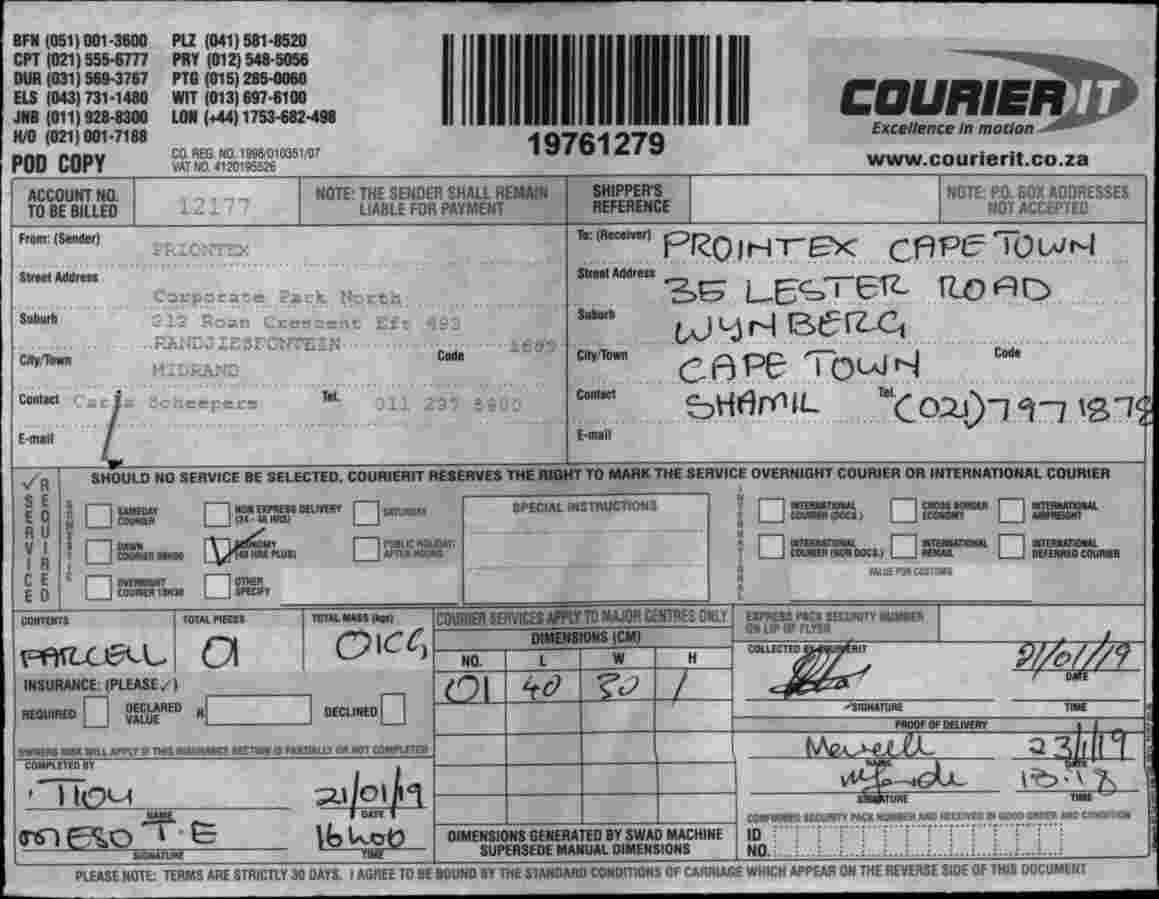 BFN (051) 001-3600 PLZ (041) 581-8520
CPT (021) 555-6777 PRY (012) 548-5056
DUR (031) 569-3767 PTG (015) 265-0060
ELS (043) 731-1480 WIT (013) 697-6100
JNB (011) 928-8300 LON (+44) 1753-682-498
H/O (021) 001-7188
POD COPY
CO. REG. NO. 1998/010351/07
VAT NO. 4120195526
19761279
COURIER IT
Excellence in motion
www.courierit.co.za
ACCOUNT NO. TO BE BILLED 12177
NOTE: THE SENDER SHALL REMAIN LIABLE FOR PAYMENT
SHIPPER'S REFERENCE
NOTE: P.O. BOX ADDRESSES NOT ACCEPTED
From: (Sender) PRIONTEX
Street Address Corporate Park North
Suburb 312 Roan Crescent
RANDJIESFONTEIN
City/Town MIDRAND Code
Contact Scheepers Tel. 011
E-mail
To: (Receiver) PROINTEX CAPE TOWN
Street Address 35 LESTER ROAD
Suburb WYNBERG
City/Town CAPE TOWN Code
Contact SHAMIL Tel. (021) 797 1878
E-mail
SHOULD NO SERVICE BE SELECTED, COURIERIT RESERVES THE RIGHT TO MARK THE SERVICE OVERNIGHT COURIER OR INTERNATIONAL COURIER
✓ SERVICE REQUIRED
DOMESTIC
SAMEDAY COURIER
NON EXPRESS DELIVERY (24 - 48 HRS)
SATURDAY
DAWN COURIER
ECONOMY (48 HRS PLUS)
PUBLIC HOLIDAY/ AFTER HOURS
OVERNIGHT COURIER 10H30
OTHER SPECIFY
SPECIAL INSTRUCTIONS
INTERNATIONAL
INTERNATIONAL COURIER (DOCS.)
CROSS BORDER ECONOMY
INTERNATIONAL AIRFREIGHT
INTERNATIONAL COURIER (NON DOCS.)
INTERNATIONAL REMAIL
INTERNATIONAL DEFERRED COURIER
VALUE FOR CUSTOMS
CONTENTS PARCELL
TOTAL PIECES 01
TOTAL MASS (kgs) 01KG
INSURANCE: (PLEASE ✓)
REQUIRED
DECLARED VALUE R
DECLINED
OWNERS RISK WILL APPLY IF THIS INSURANCE SECTION IS PARTIALLY OR NOT COMPLETED
COMPLETED BY
NAME
21/01/19
DATE
SIGNATURE
16h00
TIME
COURIER SERVICES APPLY TO MAJOR CENTRES ONLY
DIMENSIONS (CM)
NO. L W H
01 40 30 1
DIMENSIONS GENERATED BY SWAD MACHINE SUPERSEDE MANUAL DIMENSIONS
EXPRESS PACK SECURITY NUMBER ON LIP OF FLYER
COLLECTED BY COURIERIT
21/01/19
DATE
SIGNATURE TIME
PROOF OF DELIVERY
23/1/19
NAME DATE
SIGNATURE TIME
CONFIRMED SECURITY PACK NUMBER AND RECEIVED IN GOOD ORDER AND CONDITION
ID NO.
PLEASE NOTE: TERMS ARE STRICTLY 30 DAYS. I AGREE TO BE BOUND BY THE STANDARD CONDITIONS OF CARRIAGE WHICH APPEAR ON THE REVERSE SIDE OF THIS DOCUMENT